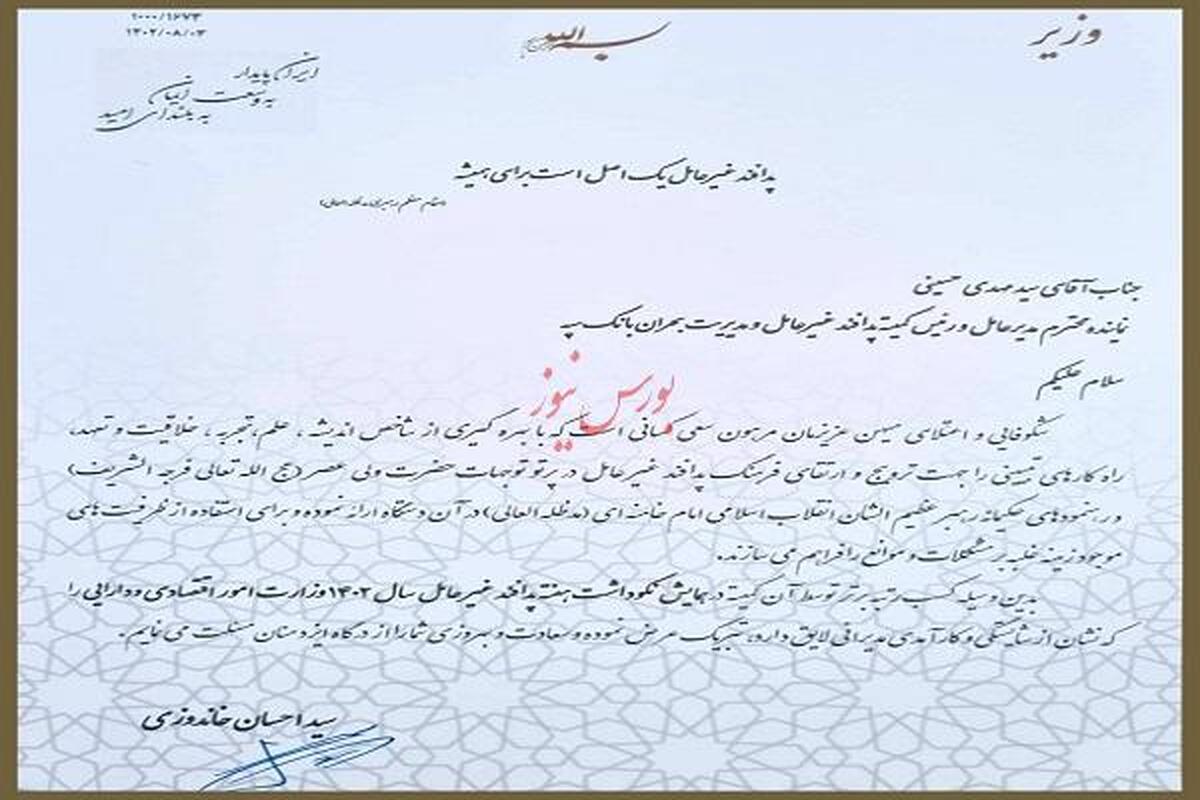 وزیر
بسمه‌الله
۱۰۰۰/۱۶۷۳
۱۴۰۲/۰۸/۰۳
ایران پایدار
به وسعت ایمان
به بلندای امید
پدافند غیرعامل یک اصل است برای همیشه
(مقام معظم رهبری مدظله العالی)
جناب آقای سید مهدی حسینی
نماینده محترم مدیرعامل و رئیس کمیته پدافند غیرعامل و مدیریت بحران بانک سپه
سلام علیکم
بورس نیوز
شکوفایی و اعتلای میهن عزیزمان مرهون سعی کسانی است که با بهره گیری از شاخص اندیشه ، علم، تجربه ، خلاقیت و تعهد،
راه کارهای تبیینی را جهت ترویج و ارتقای فرهنگ پدافند غیرعامل در پرتو توجهات حضرت ولی عصر (عج الله تعالی فرجه الشریف)
و رهنمودهای حکیمانه رهبر عظیم الشان انقلاب اسلامی امام خامنه ای (مدظله العالی) در آن دستگاه ارائه نموده و برای استفاده از ظرفیت های
موجود زمینه غلبه بر مشکلات و موانع را فراهم می سازند.
بدین وسیله کسب رتبه برتر توسط آن کمیته در همایش نکوداشت هفته پدافند غیرعامل سال ۱۴۰۲ وزارت امور اقتصادی و دارایی را
که نشان از شایستگی و کارآمدی مدیرانی لایق دارد، تبریک عرض نموده و سعادت و بهروزی شما را از درگاه ایزد منان مسئلت می نمایم.
سید احسان خاندوزی